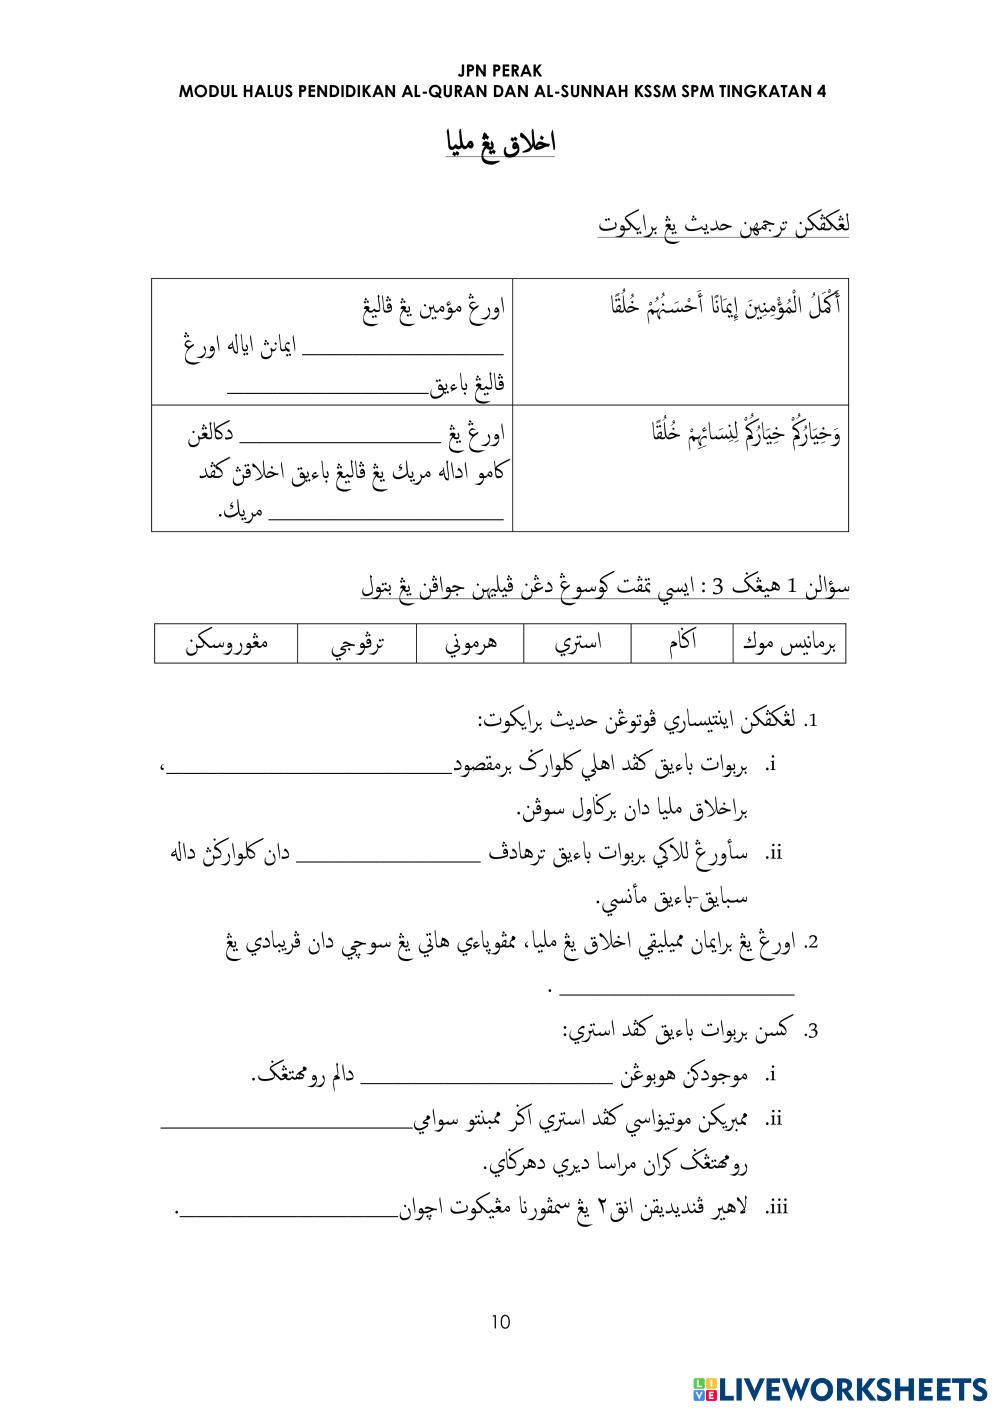 JPN PERAK
MODUL HALUS PENDIDIKAN AL-QURAN DAN AL-SUNNAH KSSM SPM TINGKATAN 4
اخلاق يڠ مليا
لڠكڤكن ترجمهن حديث يڠ برايكوت
أَكْمَلُ الْمُؤْمِنِينَ إِيمَانًا أَحْسَنُهُمْ خُلُقًا
اورڠ مؤمين يڠ ڤاليڠ
____________________ ايمانڽ اياله اورڠ
ڤاليڠ باءيق____________________
وَخِيَارُكُمْ خِيَارُكُمْ لِنِسَائِهِمْ خُلُقًا
اورڠ يڠ ____________________ دكالڠن
كامو اداله مريك يڠ ڤاليڠ باءيق اخلاقڽ كڤد
____________________ مريك.
سؤالن 1 هيڠݢ 3 : ايسي تمڤت كوسوڠ دڠن ڤيليهن جواڤن يڠ بتول
برمانيس موك
اݢام
استري
هرموني
ترڤوجي
مڠوروسكن
1. لڠكڤكن اينتيساري ڤوتوڠن حديث برايكوت:
i. بربوات باءيق كڤد اهلي كلوارݢ برمقصود____________________،
براخلاق مليا دان برݢاول سوڤن.
ii. سأورڠ للاكي بربوات باءيق ترهادڤ ____________________ دان كلوارݢڽ داله
سبايق-باءيق مأنسي.
2. اورڠ يڠ برايمان مميليقي اخلاق يڠ مليا، ممڤوياءي هاتي يڠ سوچي دان ڤريبادي يڠ
____________________ .
3. كسن بربوات باءيق كڤد استري:
i. موجودكن هوبوڠن ____________________ دالم رومهتڠݢ.
ii. ممبريكن موتيۏاسي كڤد استري اݢر ممبنتو سوامي____________________
رومهتڠݢ كران مراسا ديري دهرݢاي.
iii. لاهير ڤنديديقن انق٢ يڠ سمڤورنا مڠيكوت اچوان____________________.
10
LIVEWORKSHEETS